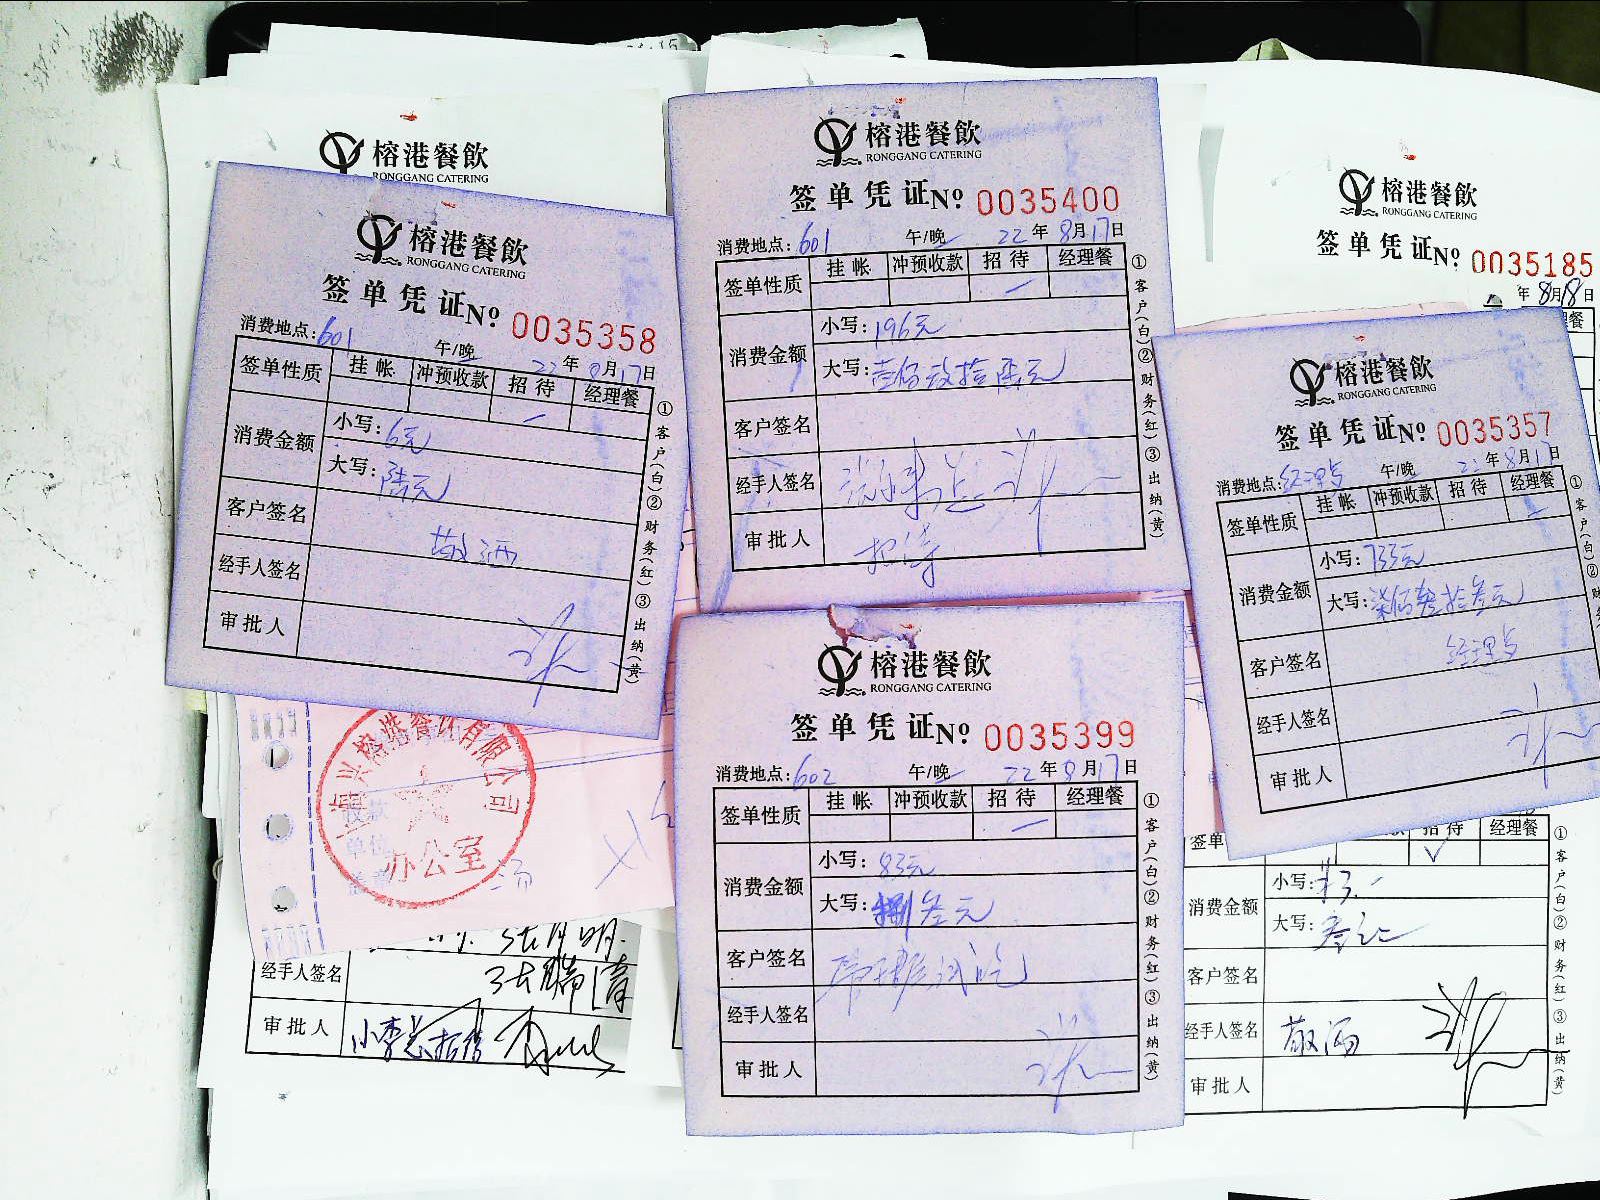 榕港餐飲
RONGGANG CATERING
榕港餐飲
RONGGANG CATERING
签单凭证№ 0035358
消费地点:601 午/晚 22年8月17日
签单性质 挂帐 冲预收款 招待 经理餐
消费金额 小写:6元
大写:陆元
客户签名 敬酒
经手人签名
审批人
①客户(白)②财务(红)③出纳(黄)
榕港餐飲
RONGGANG CATERING
签单凭证№ 0035400
消费地点:601 午/晚 22年8月17日
签单性质 挂帐 冲预收款 招待 经理餐
消费金额 小写:196元
大写:壹佰玖拾陆元
客户签名
经手人签名
审批人 招待
①客户(白)②财务(红)③出纳(黄)
榕港餐飲
RONGGANG CATERING
签单凭证№ 0035185
年8月18日
榕港餐飲
RONGGANG CATERING
签单凭证№ 0035357
消费地点: 午/晚 22年8月17日
签单性质 挂帐 冲预收款 招待 经理餐
消费金额 小写:733元
大写:柒佰叁拾叁元
客户签名
经手人签名
审批人
①客户(白)②财
榕港餐飲
RONGGANG CATERING
签单凭证№ 0035399
消费地点:602 午/晚 22年8月17日
签单性质 挂帐 冲预收款 招待 经理餐
消费金额 小写:83元
大写:捌叁元
客户签名
经手人签名
审批人
①客户(白)②财务(红)③出纳(黄)
榕港餐饮有限公司
办公室
收款
单位
经手人签名
审批人 小李总招待
签单 招待 经理餐
消费金额 小写:
大写:
客户签名
经手人签名 敬酒
审批人
①客户(白)②财务(红)③出纳(黄)